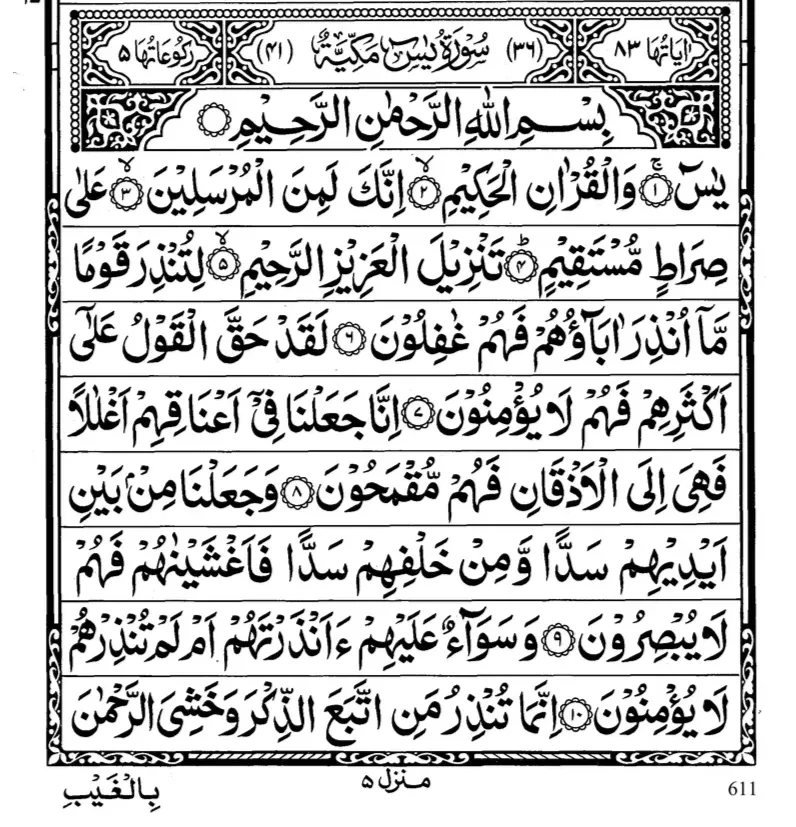 اٰيَاتُهَا ٨٣ (٣٦) سُوْرَةُ يٰسٓ مَكِّيَّةٌ (٤١) رُكُوْعَاتُهَا ٥
بِسْمِ اللّٰهِ الرَّحْمٰنِ الرَّحِيْمِ
يٰسٓ ۚ ١ وَالْقُرْاٰنِ الْحَكِيْمِ ۙ ٢ اِنَّكَ لَمِنَ الْمُرْسَلِيْنَ ۙ ٣ عَلٰى
صِرَاطٍ مُّسْتَقِيْمٍ ؕ ٤ تَنْزِيْلَ الْعَزِيْزِ الرَّحِيْمِ ۙ ٥ لِتُنْذِرَ قَوْمًا
مَّاۤ اُنْذِرَ اٰبَآؤُهُمْ فَهُمْ غٰفِلُوْنَ ٦ لَقَدْ حَقَّ الْقَوْلُ عَلٰۤى
اَكْثَرِهِمْ فَهُمْ لَا يُؤْمِنُوْنَ ٧ اِنَّا جَعَلْنَا فِيْۤ اَعْنَاقِهِمْ اَغْلٰلًا
فَهِيَ اِلَى الْاَذْقَانِ فَهُمْ مُّقْمَحُوْنَ ٨ وَجَعَلْنَا مِنْۢ بَيْنِ
اَيْدِيْهِمْ سَدًّا وَّمِنْ خَلْفِهِمْ سَدًّا فَاَغْشَيْنٰهُمْ فَهُمْ
لَا يُبْصِرُوْنَ ٩ وَسَوَآءٌ عَلَيْهِمْ ءَاَنْذَرْتَهُمْ اَمْ لَمْ تُنْذِرْهُمْ
لَا يُؤْمِنُوْنَ ١٠ اِنَّمَا تُنْذِرُ مَنِ اتَّبَعَ الذِّكْرَ وَخَشِيَ الرَّحْمٰنَ
بِالْغَيْبِ منزل ٥ 611